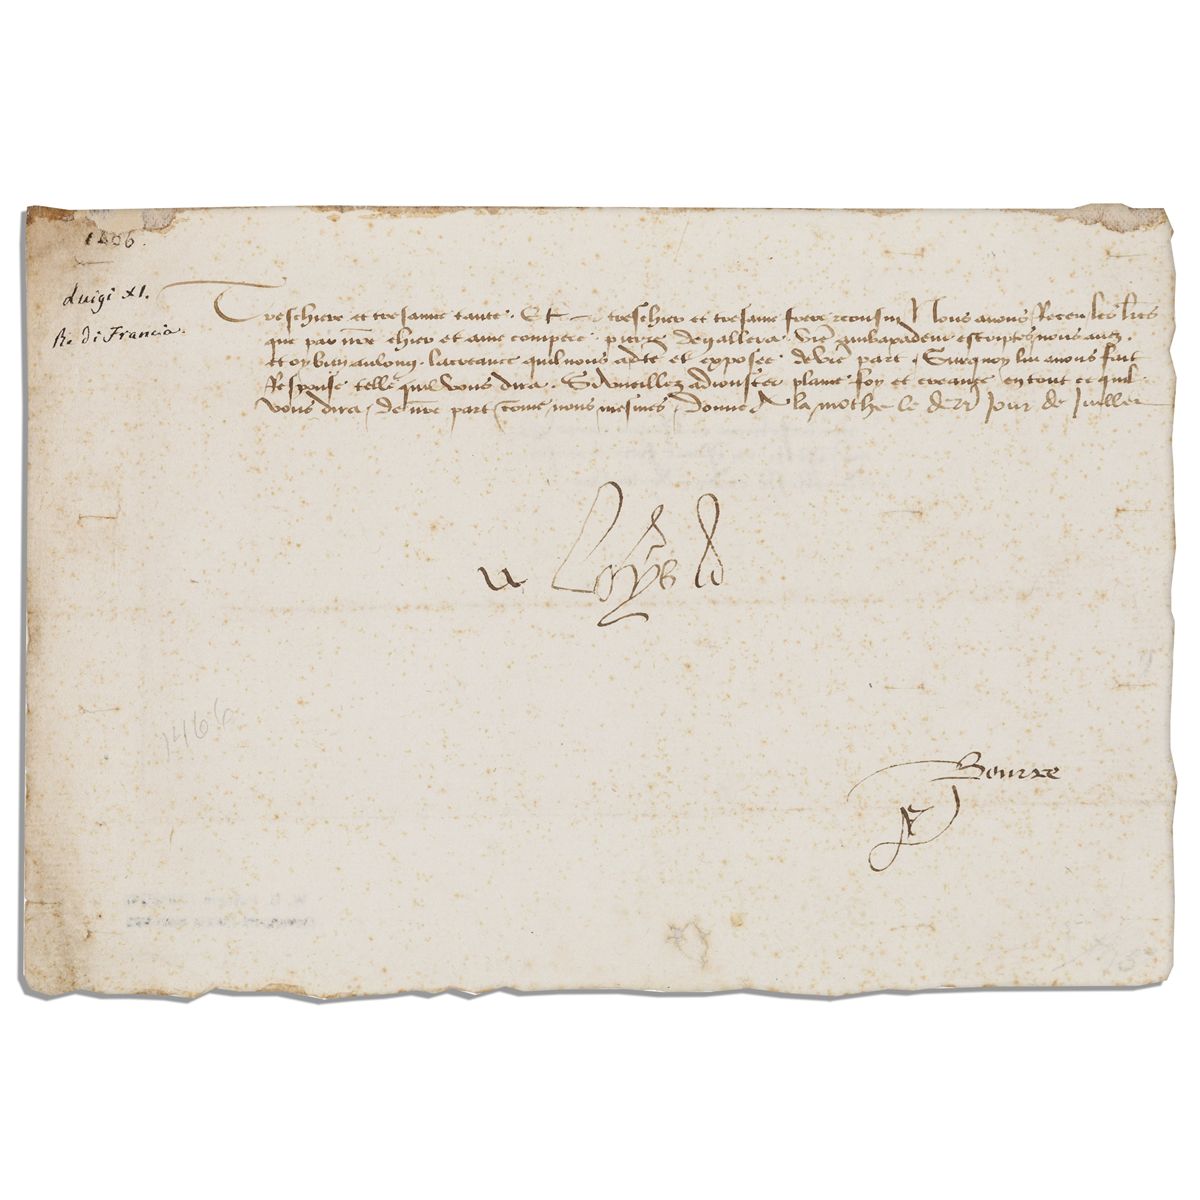 1466.
Luigi XI.
R. di Francia.
Treschiere et tresamee tante. Et treschier et tresame frere et cousin Nous avons Receu les lrēs
que par nrē chier et ame compere pierre de gallera vrē ambaxadeur escriptes nous avez
et oy bien au long la creance quil nous a dte et exposee de vrē part, Surquoy lui avons fait
Response telle que vous dira. Si vueillez adiouster plaine foy et creance en tout ce quil
vous dira de nrē part cōme nous mesmes, Donne a la mothe le jour de Juillet
Loys
Bourre
1466